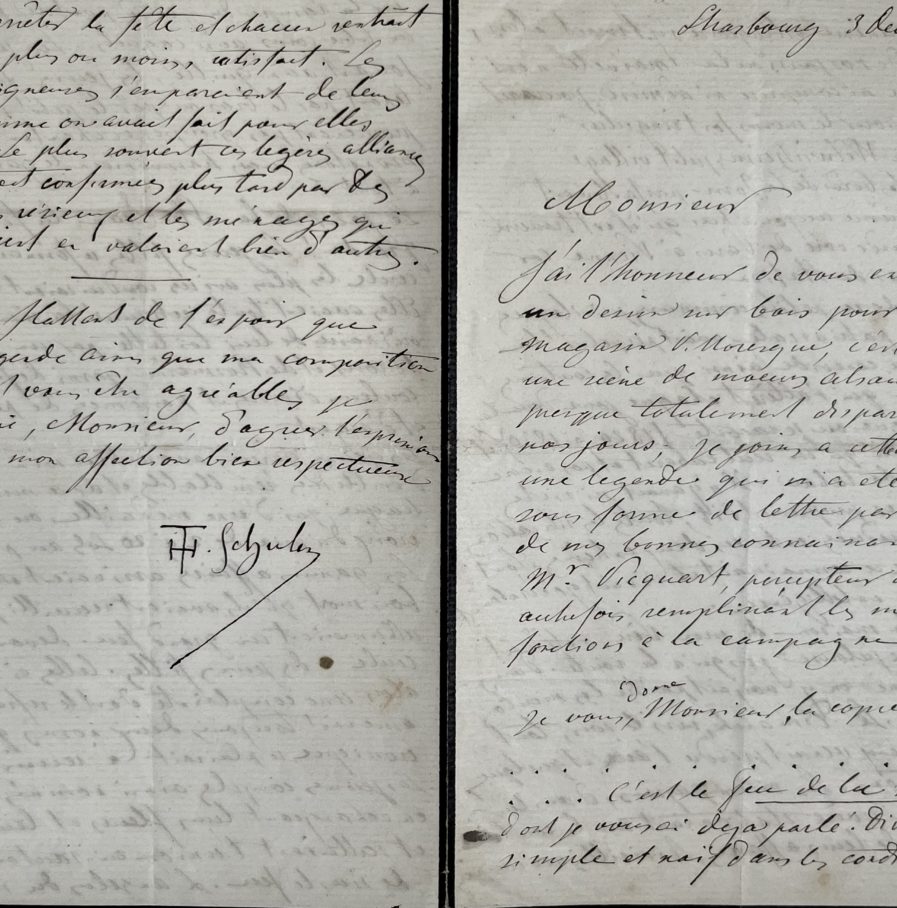 arrêter la fête et chacun rentrait
plus ou moins satisfait. Les
igneuses s'emparaient de leurs
mme on avait fait pour elles
Le plus souvent ces légères alliances
ient confirmées plus tard par des
s sérieux et les ménages qui
ient en valaient bien d'autres.
flattant de l'espoir que
gende ainsi que ma composition
t vous être agréables je
ie, Monsieur, d'agréer l'expression
mon affection bien respectueuse
TH. Schuler
Strasbourg 3 De
Monsieur
J'ai l'honneur de vous en
un dessin sur bois pour
magasin Pittoresque c'est
une scène de moeurs alsac
presque totalement dispar
nos jours; je joins a cette
une legende qui m'a ete
sous forme de lettre par
de mes bonnes connaissan
Mr. Picquart, percepteur
autrefois remplissant les m
fonctions à la campagne
Je vous donne, Monsieur, la copie
. . . . . . . . . . .
. . . . C'est le Jeu de la
dont je vous ai deja parlé. Di
simple et naif dans les cord